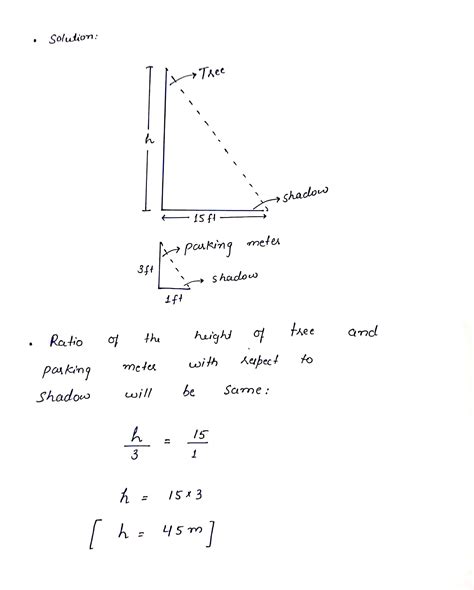 • Solution:
Tree
h
shadow
15 ft
parking meter
3ft
shadow
1ft
• Ratio of the height of tree and
parking meter with respect to
shadow will be same:
h/3 = 15/1
h = 15 × 3
[ h = 45 m ]